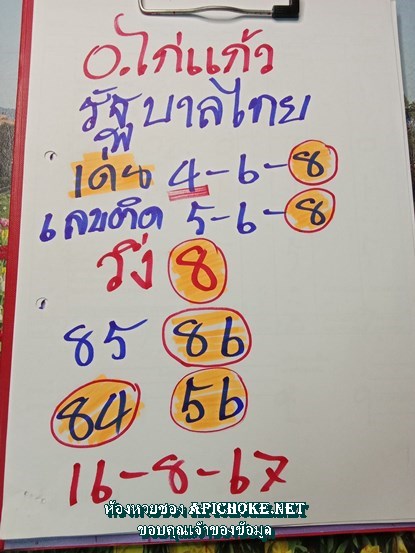 อ.ไก่แก้ว
รัฐบาลไทย
เด่น 4-6-8
เลขติด 5-6-8
วิ่ง 8
85 86
84 56
16-8-67
ห้องหวยซอง APICHOKE.NET
ขอบคุณเจ้าของข้อมูล